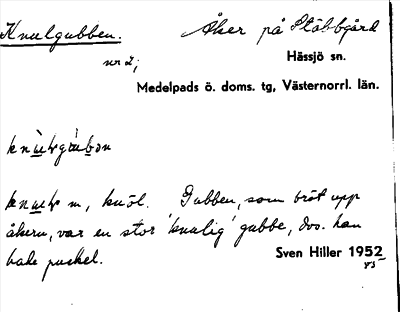 Knulgubben.
Åker på Stöbbgård
nr 2;
Hässjö sn.
Medelpads ö. doms. tg, Västernorrl. län.
m, knöl. Gubben, som bröt upp
åkern, var en stor 'knulig' gubbe, dvs. han
hade puckel.
Sven Hiller 1952